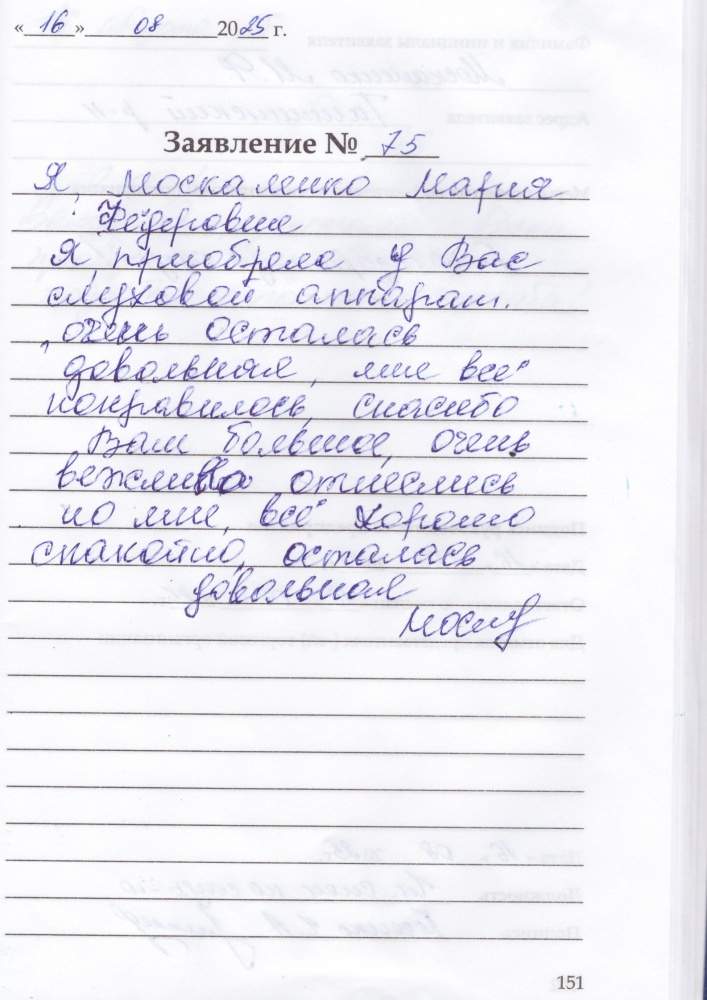 « 16 » 08 2025 г.
Заявление № 75
Я, Москаленко Мария
Федоровна
Я приобрела у Вас
слуховой аппарат.
очень осталась
довольная, мне всё
понравилось, спасибо
Вам большое, очень
вежливо отнеслись
ко мне, всё хорошо
спакойно, осталась
довольная
151